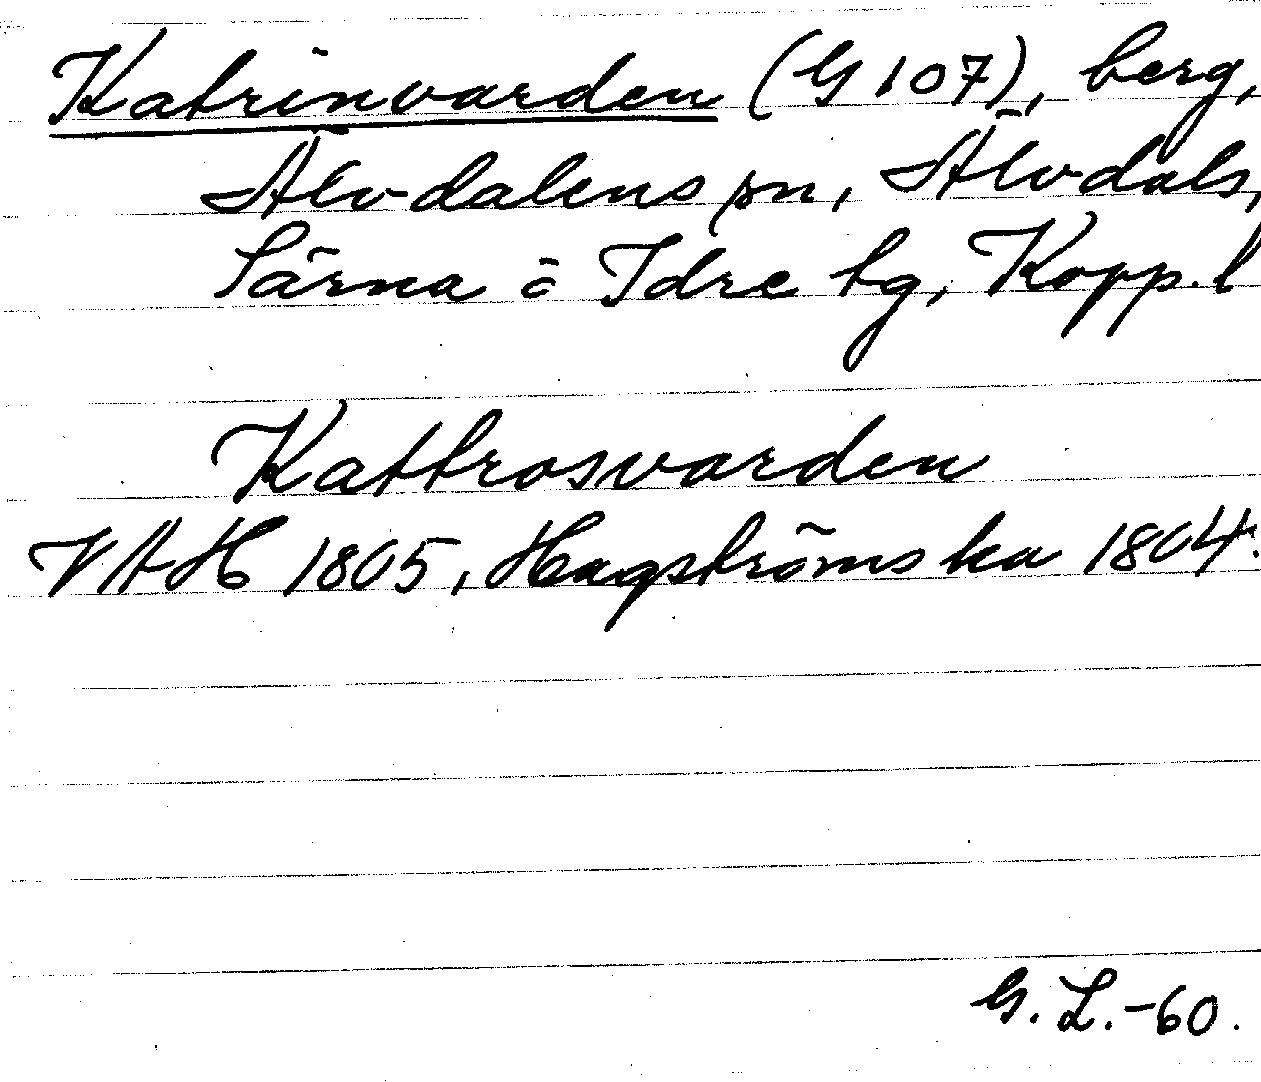 Katrinvarden (G 107), berg,
Älvdalens sn, Älvdals,
Särna o Idre tg, Kopp. l
Kattrosvarden
VAH 1805, Hagströms ka 1804.
G. L. -60.